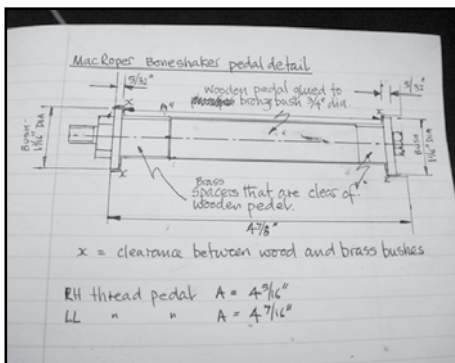 MacRopers Boneshaker pedal detail
5/32"
5/32"
wooden pedal glued to
bush 3/4" dia.
x
A"
x
BUSH
1 1/16" DIA
BUSH
1 1/16" DIA
x
x
Brass
spacers that are clear of
wooden pedal.
4 7/8"
x = clearance between wood and brass bushes
RH thread pedal A = 4 5/16"
LL " " A = 4 7/16"